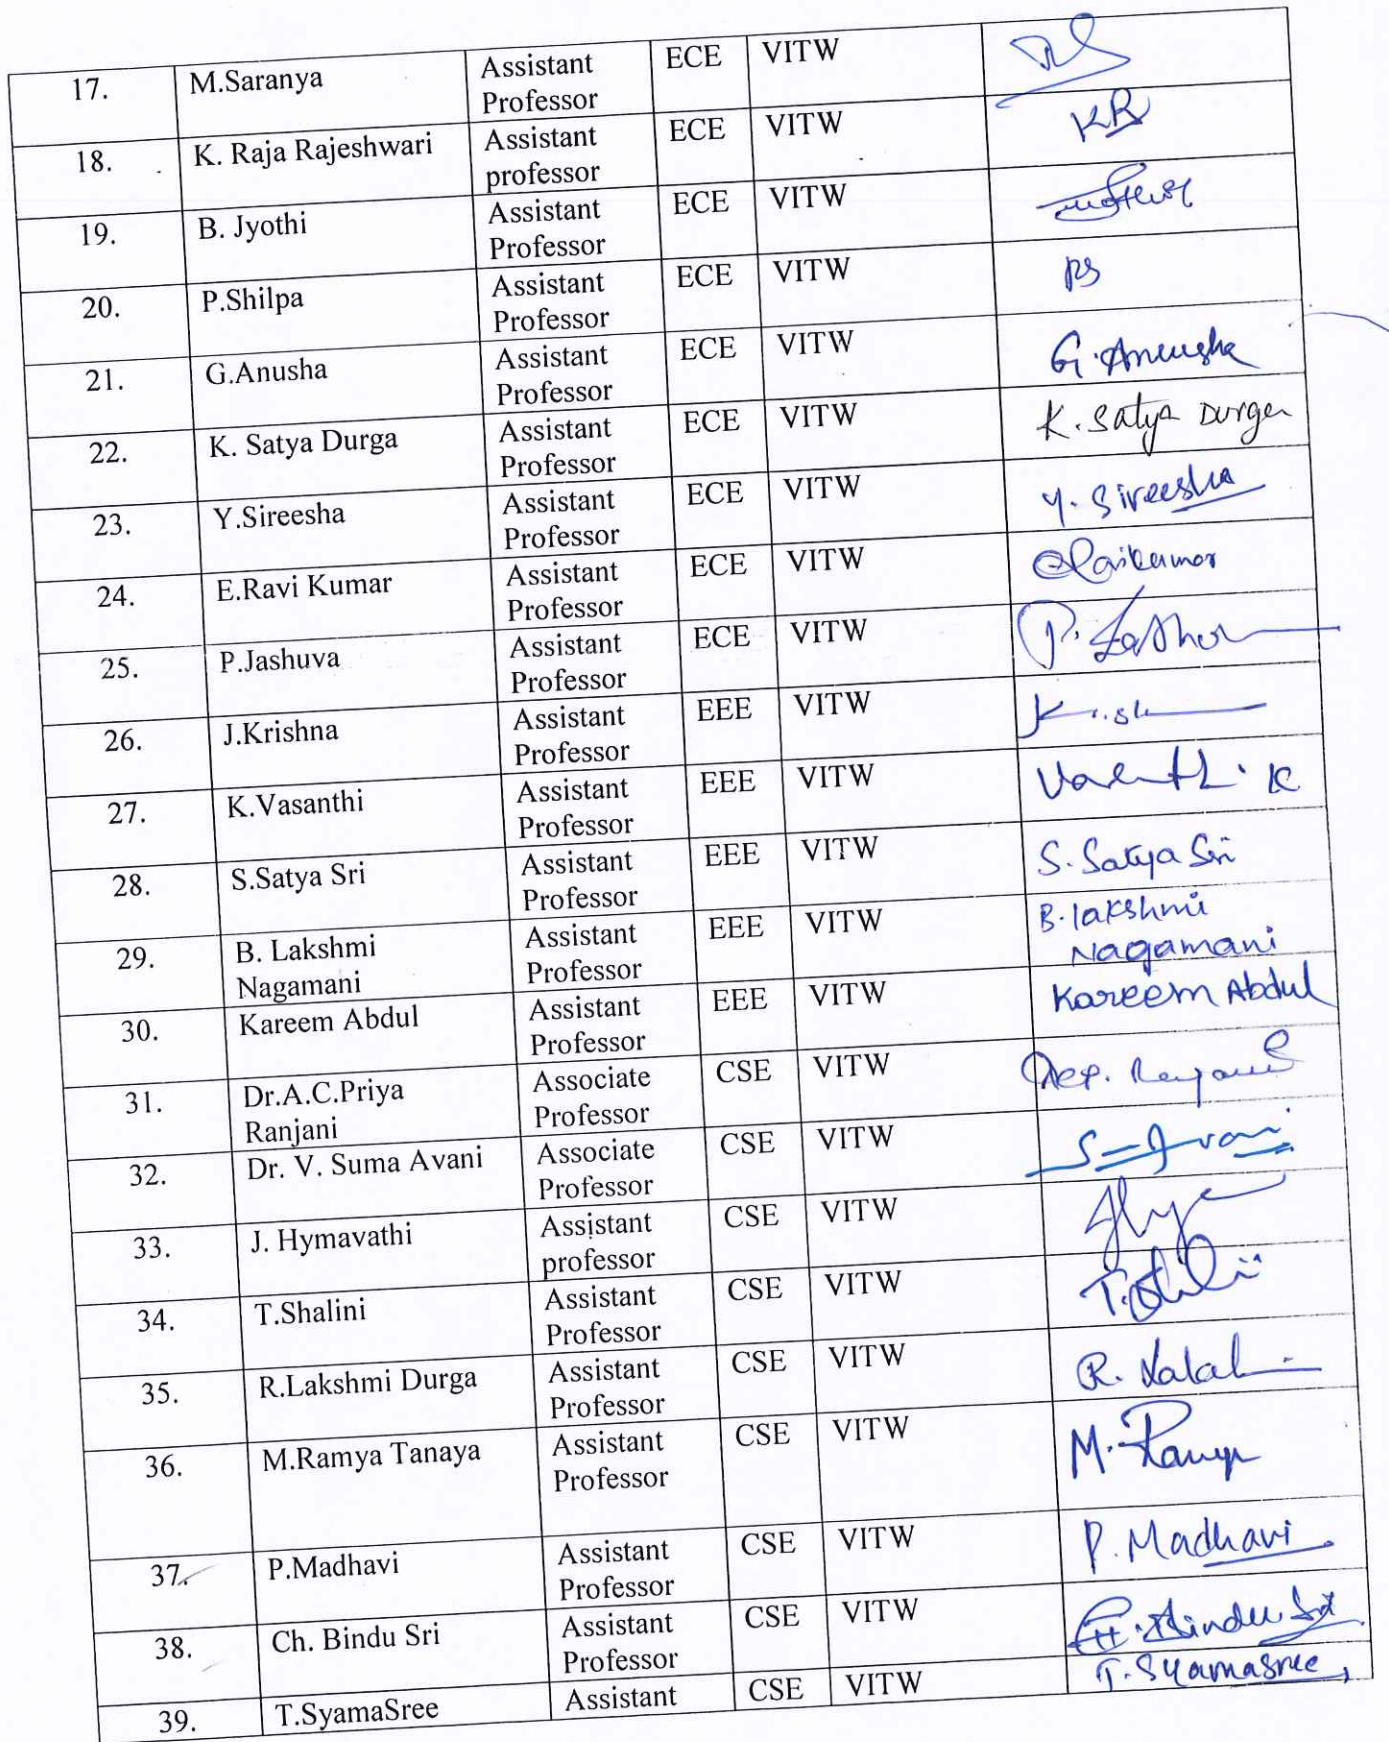 17. M.Saranya Assistant Professor ECE VITW
18. K. Raja Rajeshwari Assistant professor ECE VITW KR
19. B. Jyothi Assistant Professor ECE VITW
20. P.Shilpa Assistant Professor ECE VITW PS
21. G.Anusha Assistant Professor ECE VITW G.Anusha
22. K. Satya Durga Assistant Professor ECE VITW K. Satya Durga
23. Y.Sireesha Assistant Professor ECE VITW Y. Sireesha
24. E.Ravi Kumar Assistant Professor ECE VITW
25. P.Jashuva Assistant Professor ECE VITW
26. J.Krishna Assistant Professor EEE VITW
27. K.Vasanthi Assistant Professor EEE VITW
28. S.Satya Sri Assistant Professor EEE VITW S. Satya Sri
29. B. Lakshmi Nagamani Assistant Professor EEE VITW B. lakshmi Nagamani
30. Kareem Abdul Assistant Professor EEE VITW Kareem Abdul
31. Dr.A.C.Priya Ranjani Associate Professor CSE VITW
32. Dr. V. Suma Avani Associate Professor CSE VITW
33. J. Hymavathi Assistant professor CSE VITW
34. T.Shalini Assistant Professor CSE VITW
35. R.Lakshmi Durga Assistant Professor CSE VITW
36. M.Ramya Tanaya Assistant Professor CSE VITW M. Ramya
37. P.Madhavi Assistant Professor CSE VITW P. Madhavi
38. Ch. Bindu Sri Assistant Professor CSE VITW Ch. Bindu Sri
39. T.SyamaSree Assistant CSE VITW T. Syamasree